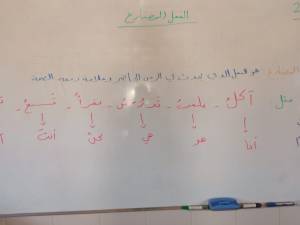 الفعل المضارع
هو الفعل الذي يحدث في الزمن الحاضر وعلامة رفعه الضمة
مثل: آكلُ - يلعبُ - تدرسُ - نقرأُ - تسمعُ
أنا هو هي نحن أنتَ